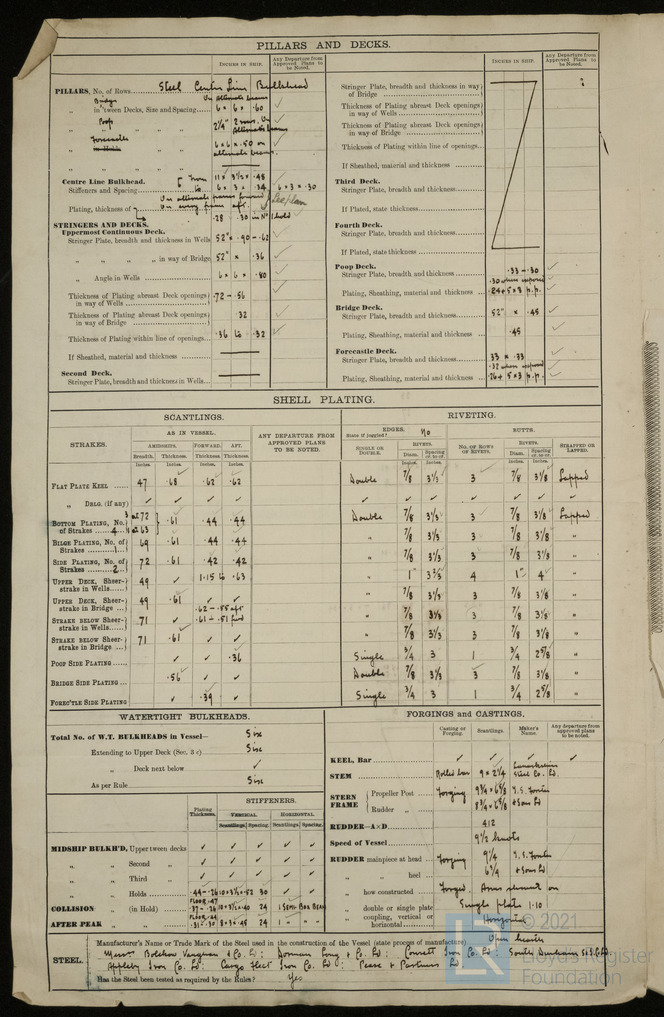 PILLARS AND DECKS.
INCHES IN SHIP.
Any Departure from Approved Plans to be Noted.
PILLARS, No. of Rows Steel Centre Line Bulkhead
Bridge On alternate beams
„ in 'tween Decks, Size and Spacing 6 × 6 × .60
Poop 2¼" 2 rows. On alternate beams
Forecastle 6 × 6 × .50 on alternate beams.
Centre Line Bulkhead. 11 × 3½ × .48
Stiffeners and Spacing 6 × 3 × .34 6 × 3 × .30
On alternate frames forward See plan
Plating, thickness of On every frame aft.
.28 .30 in No 1 hold
STRINGERS AND DECKS.
Uppermost Continuous Deck.
Stringer Plate, breadth and thickness in Wells 52" × .90 - .62
„ „ „ „ in way of Bridge 52" × .36
„ Angle in Wells 6 × 6 × .80
Thickness of Plating abreast Deck openings in way of Wells .72 - .56
Thickness of Plating abreast Deck openings in way of Bridge .32
Thickness of Plating within line of openings .36 to .32
If Sheathed, material and thickness
Second Deck.
Stringer Plate, breadth and thickness in Wells
INCHES IN SHIP.
Any Departure from Approved Plans to be Noted.
Stringer Plate, breadth and thickness in way of Bridge
Thickness of Plating abreast Deck openings in way of Wells
Thickness of Plating abreast Deck openings in way of Bridge
Thickness of Plating within line of openings
If Sheathed, material and thickness
Third Deck.
Stringer Plate, breadth and thickness
If Plated, state thickness
Fourth Deck.
Stringer Plate, breadth and thickness
If Plated, state thickness
Poop Deck.
Stringer Plate, breadth and thickness .33 - .30
.30 where exposed
Plating, Sheathing, material and thickness .24 + 5 × 3 p.p.
Bridge Deck.
Stringer Plate, breadth and thickness 52" × .48
Plating, Sheathing, material and thickness .45
Forecastle Deck.
Stringer Plate, breadth and thickness 33 × .33
.32 where exposed
Plating, Sheathing, material and thickness .26 + 5 × 3 p.p.
SHELL PLATING.
SCANTLINGS.
RIVETING.
STRAKES.
AS IN VESSEL.
AMIDSHIPS. FORWARD. AFT.
Breadth. Thickness. Thickness. Thickness.
Inches. Inches. Inches. Inches.
ANY DEPARTURE FROM APPROVED PLANS TO BE NOTED.
EDGES. No
State if joggled?
BUTTS.
SINGLE OR DOUBLE.
RIVETS.
Diam. Spacing c. to c.
No. OF ROWS OF RIVETS.
RIVETS.
Diam. Spacing c. to c.
STRAPPED OR LAPPED.
FLAT PLATE KEEL 47 .68 .62 .62 Double 7/8 3⅓ 3 7/8 3 1/8 Lapped
„ DBLG. (if any) ✓ ✓ ✓ ✓ ✓ ✓ ✓ ✓ ✓ ✓ ✓
BOTTOM PLATING, No. of Strakes 4 3 at 72 1 at 63 .61 .44 .44 Double 7/8 3⅓ 3 7/8 3 1/8 Lapped
BILGE PLATING, No. of Strakes 1 69 .61 .44 .44 „ 7/8 3⅓ 3 7/8 3 1/8 „
SIDE PLATING, No. of Strakes 2 72 .61 .42 .42 „ 7/8 3⅓ 3 7/8 3 1/8 „
UPPER DECK, Sheerstrake in Wells 49 ✓ 1.15 to .63 „ 1" 4 1" 4 „
UPPER DECK, Sheerstrake in Bridge 49 .61 ✓ ✓ „ 7/8 3⅓ 3 7/8 3 1/8 „
.62 - .55 aft
STRAKE BELOW Sheerstrake in Wells 71 ✓ .61 - .51 fwd „ 7/8 3⅓ 3 7/8 3 1/8 „
STRAKE BELOW Sheerstrake in Bridge 71 .61 ✓ ✓ „ 7/8 3⅓ 3 7/8 3 1/8 „
POOP SIDE PLATING ✓ ✓ .36 Single 3/4 3 1 3/4 2 5/8 „
BRIDGE SIDE PLATING .56 ✓ ✓ Double 7/8 3⅓ 3 7/8 3 1/8 „
FOREC'TLE SIDE PLATING ✓ .39 ✓ Single 3/4 3 1 3/4 2 5/8 „
WATERTIGHT BULKHEADS.
Total No. of W.T. BULKHEADS in Vessel— Six
Extending to Upper Deck (Sec. 3 c) Six
„ Deck next below ✓
As per Rule Six
Plating Thickness.
STIFFENERS.
VERTICAL HORIZONTAL
Scantlings. Spacing. Scantlings. Spacing.
MIDSHIP BULKH'D, Upper tween decks ✓ ✓ ✓ ✓ ✓
„ „ Second „ ✓ ✓ ✓ ✓ ✓
„ „ Third „ ✓ ✓ ✓ ✓ ✓
„ „ Holds .44 - .26 10 × 3½ × .52 30 ✓ ✓
FLOOR .47
COLLISION „ (in Hold) .37 - .26 10 × 3½ × .40 24 1 SEMI BOX BEAM
FLOOR .44
AFTER PEAK „ „ .31 - .30 8 × 3 × .45 24 1 „ „ „
FORGINGS and CASTINGS.
Casting or Forging. Scantlings. Maker's Name. Any departure from approved plans to be noted.
KEEL, Bar ✓ ✓ ✓ ✓
STEM Rolled bar 9 × 2¼ Lanarkshire Steel Co. Ld.
STERN FRAME
Propeller Post Forging 9¾ × 6⅝ T.S. Forster
Rudder „ 8¾ × 6⅝ + Sons Ld
RUDDER—A × D 412
Speed of Vessel 9½ knots
RUDDER mainpiece at head Forging 9¼ T.S. Forster
„ „ heel 6¾ + Sons Ld
„ how constructed Forged. Arms shrunk on
„ double or single plate Single plate 1.10
„ coupling, vertical or horizontal Horizontal
Open hearth
Manufacturer's Name or Trade Mark of the Steel used in the construction of the Vessel (state process of manufacture)
STEEL. Messrs Bolckow Vaughan & Co. Ld: Dorman Long & Co. Ld: Consett Iron Co. Ld: South Durham S & I Co Ld
Appleby Iron Co. Ld: Cargo Fleet Iron Co. Ld: Pease & Partners Ld.
Has the Steel been tested as required by the Rules? Yes
© 2021
Lloyd's Register
Foundation